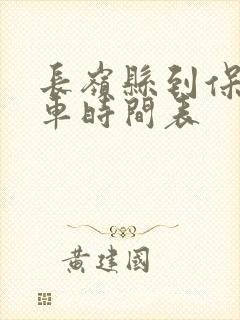 長嶺縣到保
車時間表
黃建國